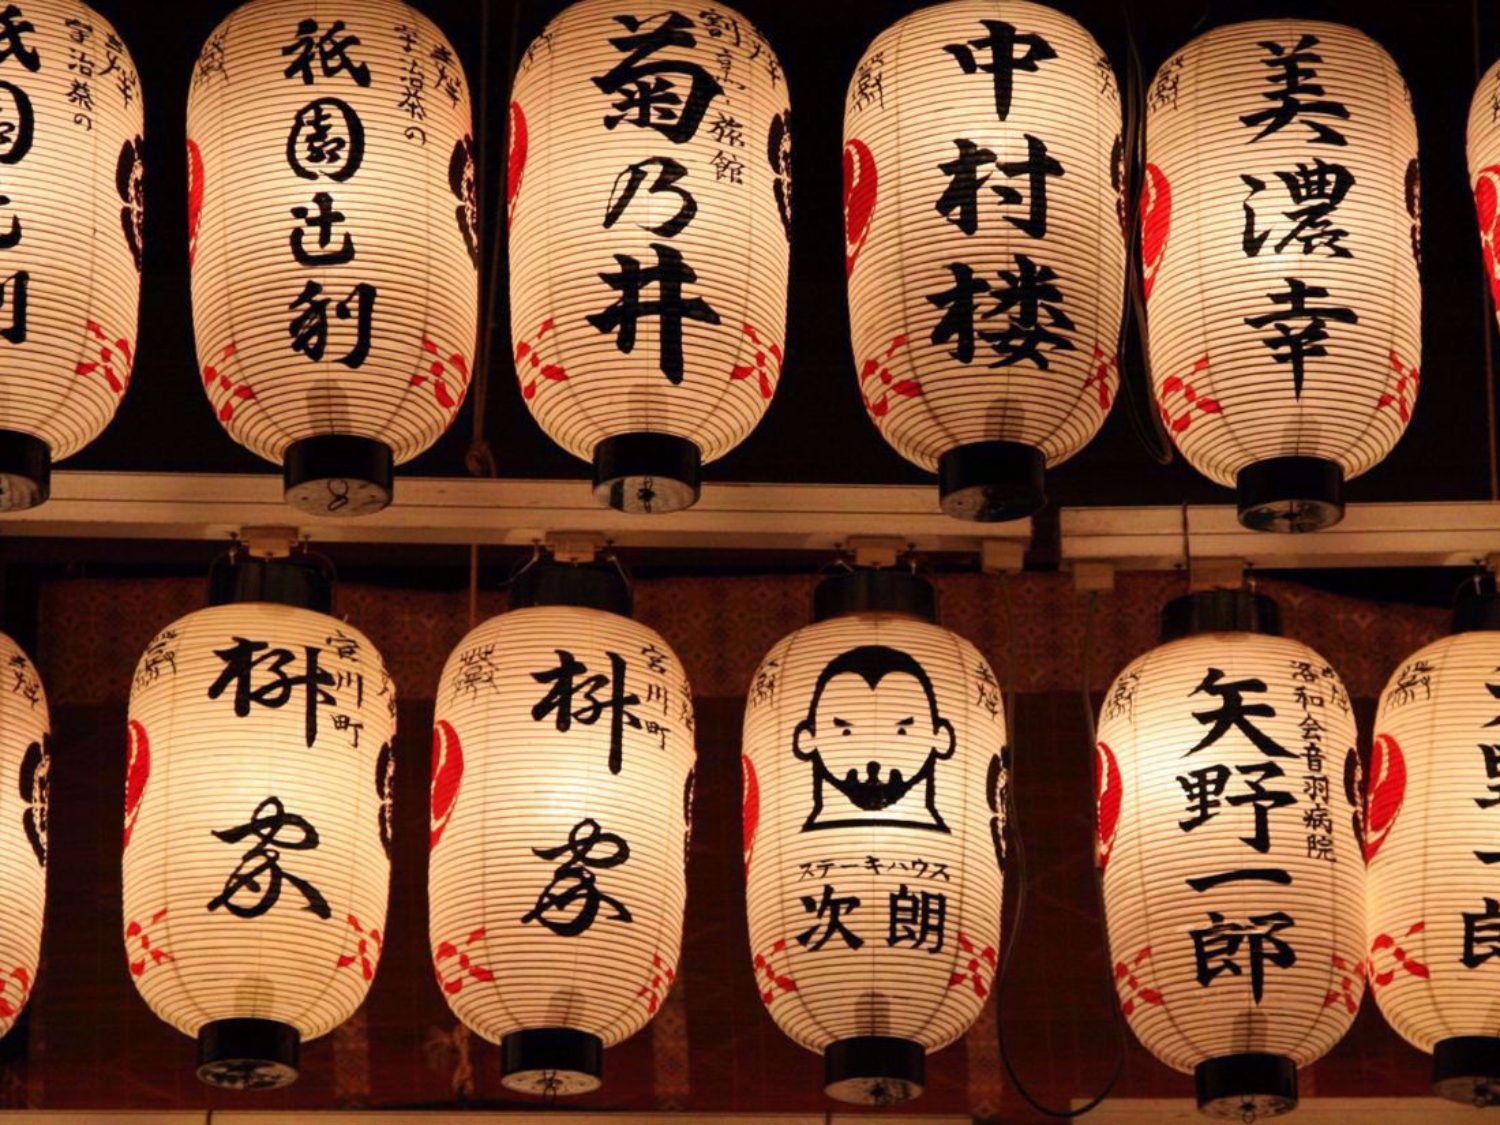 祇園辻利
宇治茶の
祇園辻利
宇治茶の
菊乃井
割烹・旅館
中村楼
美濃幸
桝家
宮川町
桝家
宮川町
ステーキハウス
次朗
矢野一郎
洛和会音羽病院